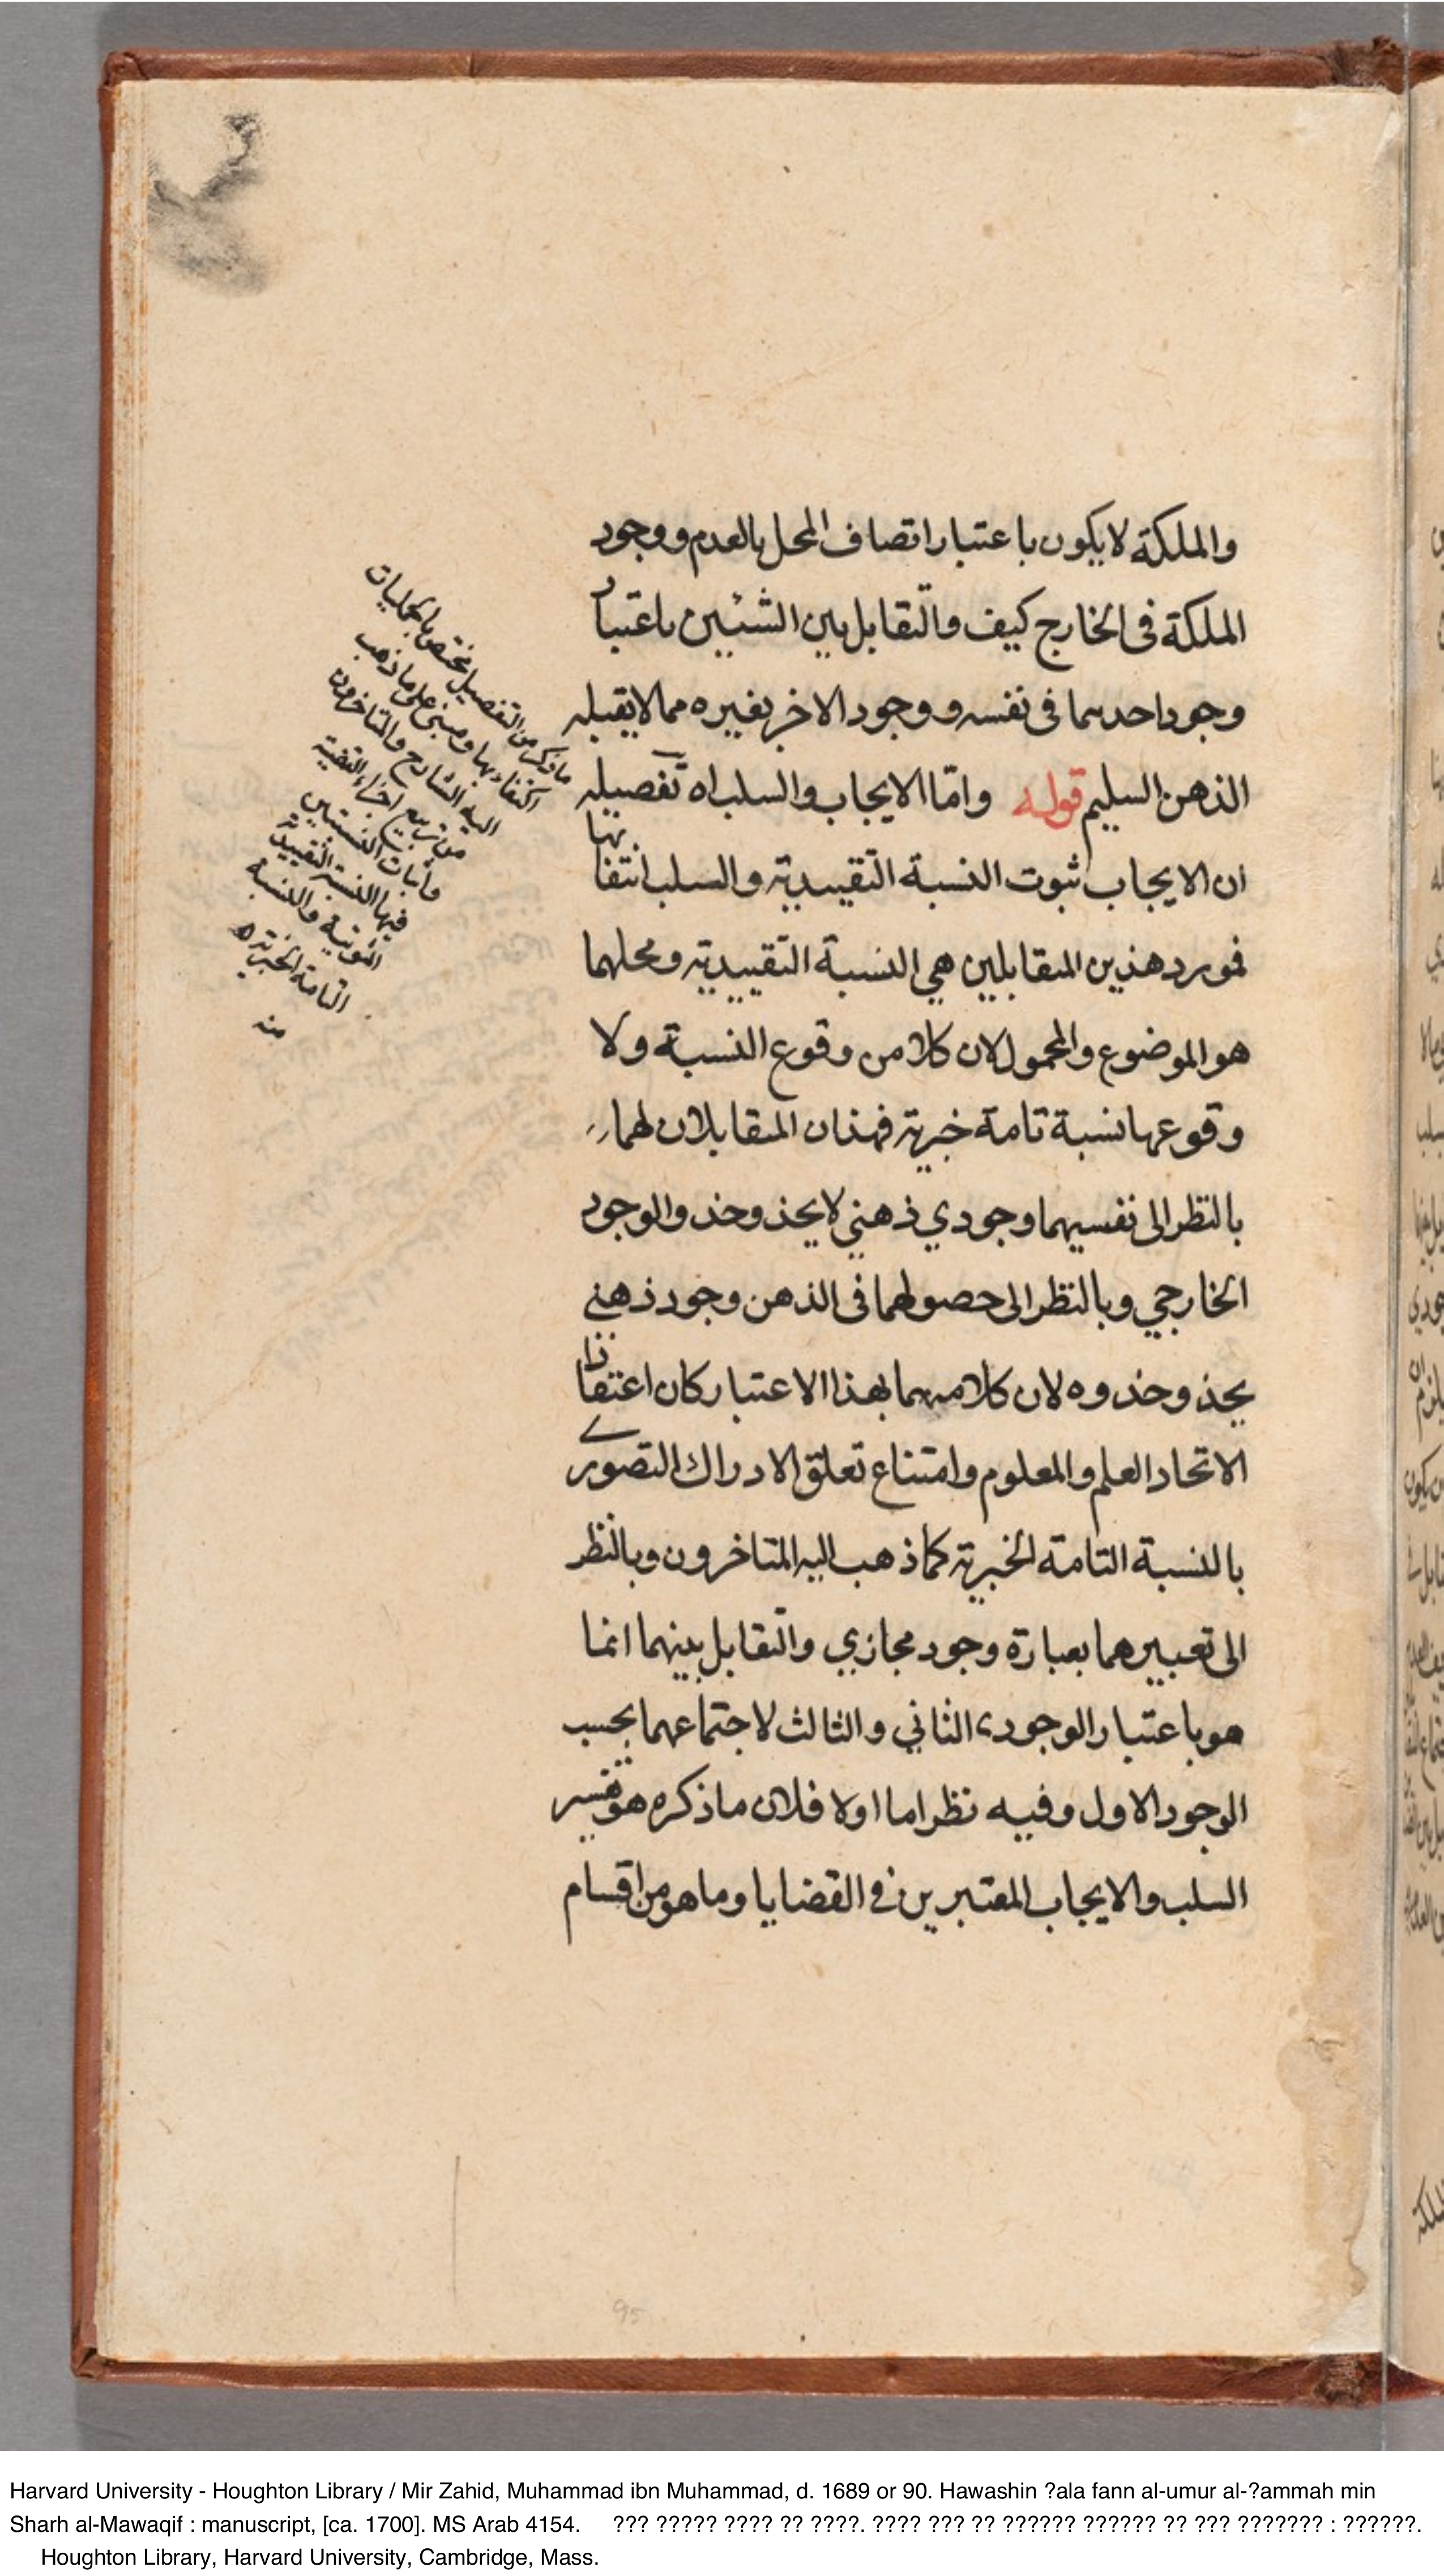 والملكة لا يكون باعتبار اتصاف المحل بالعدم و وجود
الملكة فى الخارج كيف والتقابل بين الشيئين باعتبار
وجود احدهما فى نفسه و وجود الاخر بغيره مما لا يقبله
الذهن السليم قوله واما الايجاب والسلب اه تفصيله
ان الايجاب ثبوت النسبة التقييدية والسلب انتفائها
فمورد هذين المتقابلين هي النسبة التقييدية ومحلهما
هو الموضوع والمحمول لان كلا من وقوع النسبة ولا
وقوعها نسبة تامة خبرية فهذان المتقابلان لهما
بالنظر الى نفسيهما وجودي ذهني لا يحذو حذو الوجود
الخارجي وبالنظر الى حصولهما فى الذهن وجود ذهني
يحذو حذوه لان كلا منهما بهذا الاعتبار كان اعتقادا
الاتحاد العلم والمعلوم وامتناع تعلق الادراك التصوري
بالنسبة التامة الخبرية كما ذهب اليه المتاخرون وبالنظر
الى تعبيرهما بعبارة وجود مجازي والتقابل بينهما انما
هو باعتبار الوجودى الثاني والثالث لاجتماعهما بحسب
الوجود الاول وفيه نظر اما اولا فلان ما ذكره هو تفسير
السلب والايجاب المعتبرين في القضايا وما هو من اقسام
ما ذكر من التفصيل يختص بالحمليات
اكتفاء بها ومبنى على ما ذهب
اليه الشارح والمتاخرون
من تربيع اجزاء القضية
واثبات النسبتين
فيها النسبة التقييدية
الثبوتية والنسبة
التامة الخبرية ه
منه
95
Harvard University - Houghton Library / Mir Zahid, Muhammad ibn Muhammad, d. 1689 or 90. Hawashin ?ala fann al-umur al-?ammah min
Sharh al-Mawaqif : manuscript, [ca. 1700]. MS Arab 4154. ??? ????? ???? ?? ????. ???? ??? ?? ?????? ?????? ?? ??? ??????? : ??????.
Houghton Library, Harvard University, Cambridge, Mass.